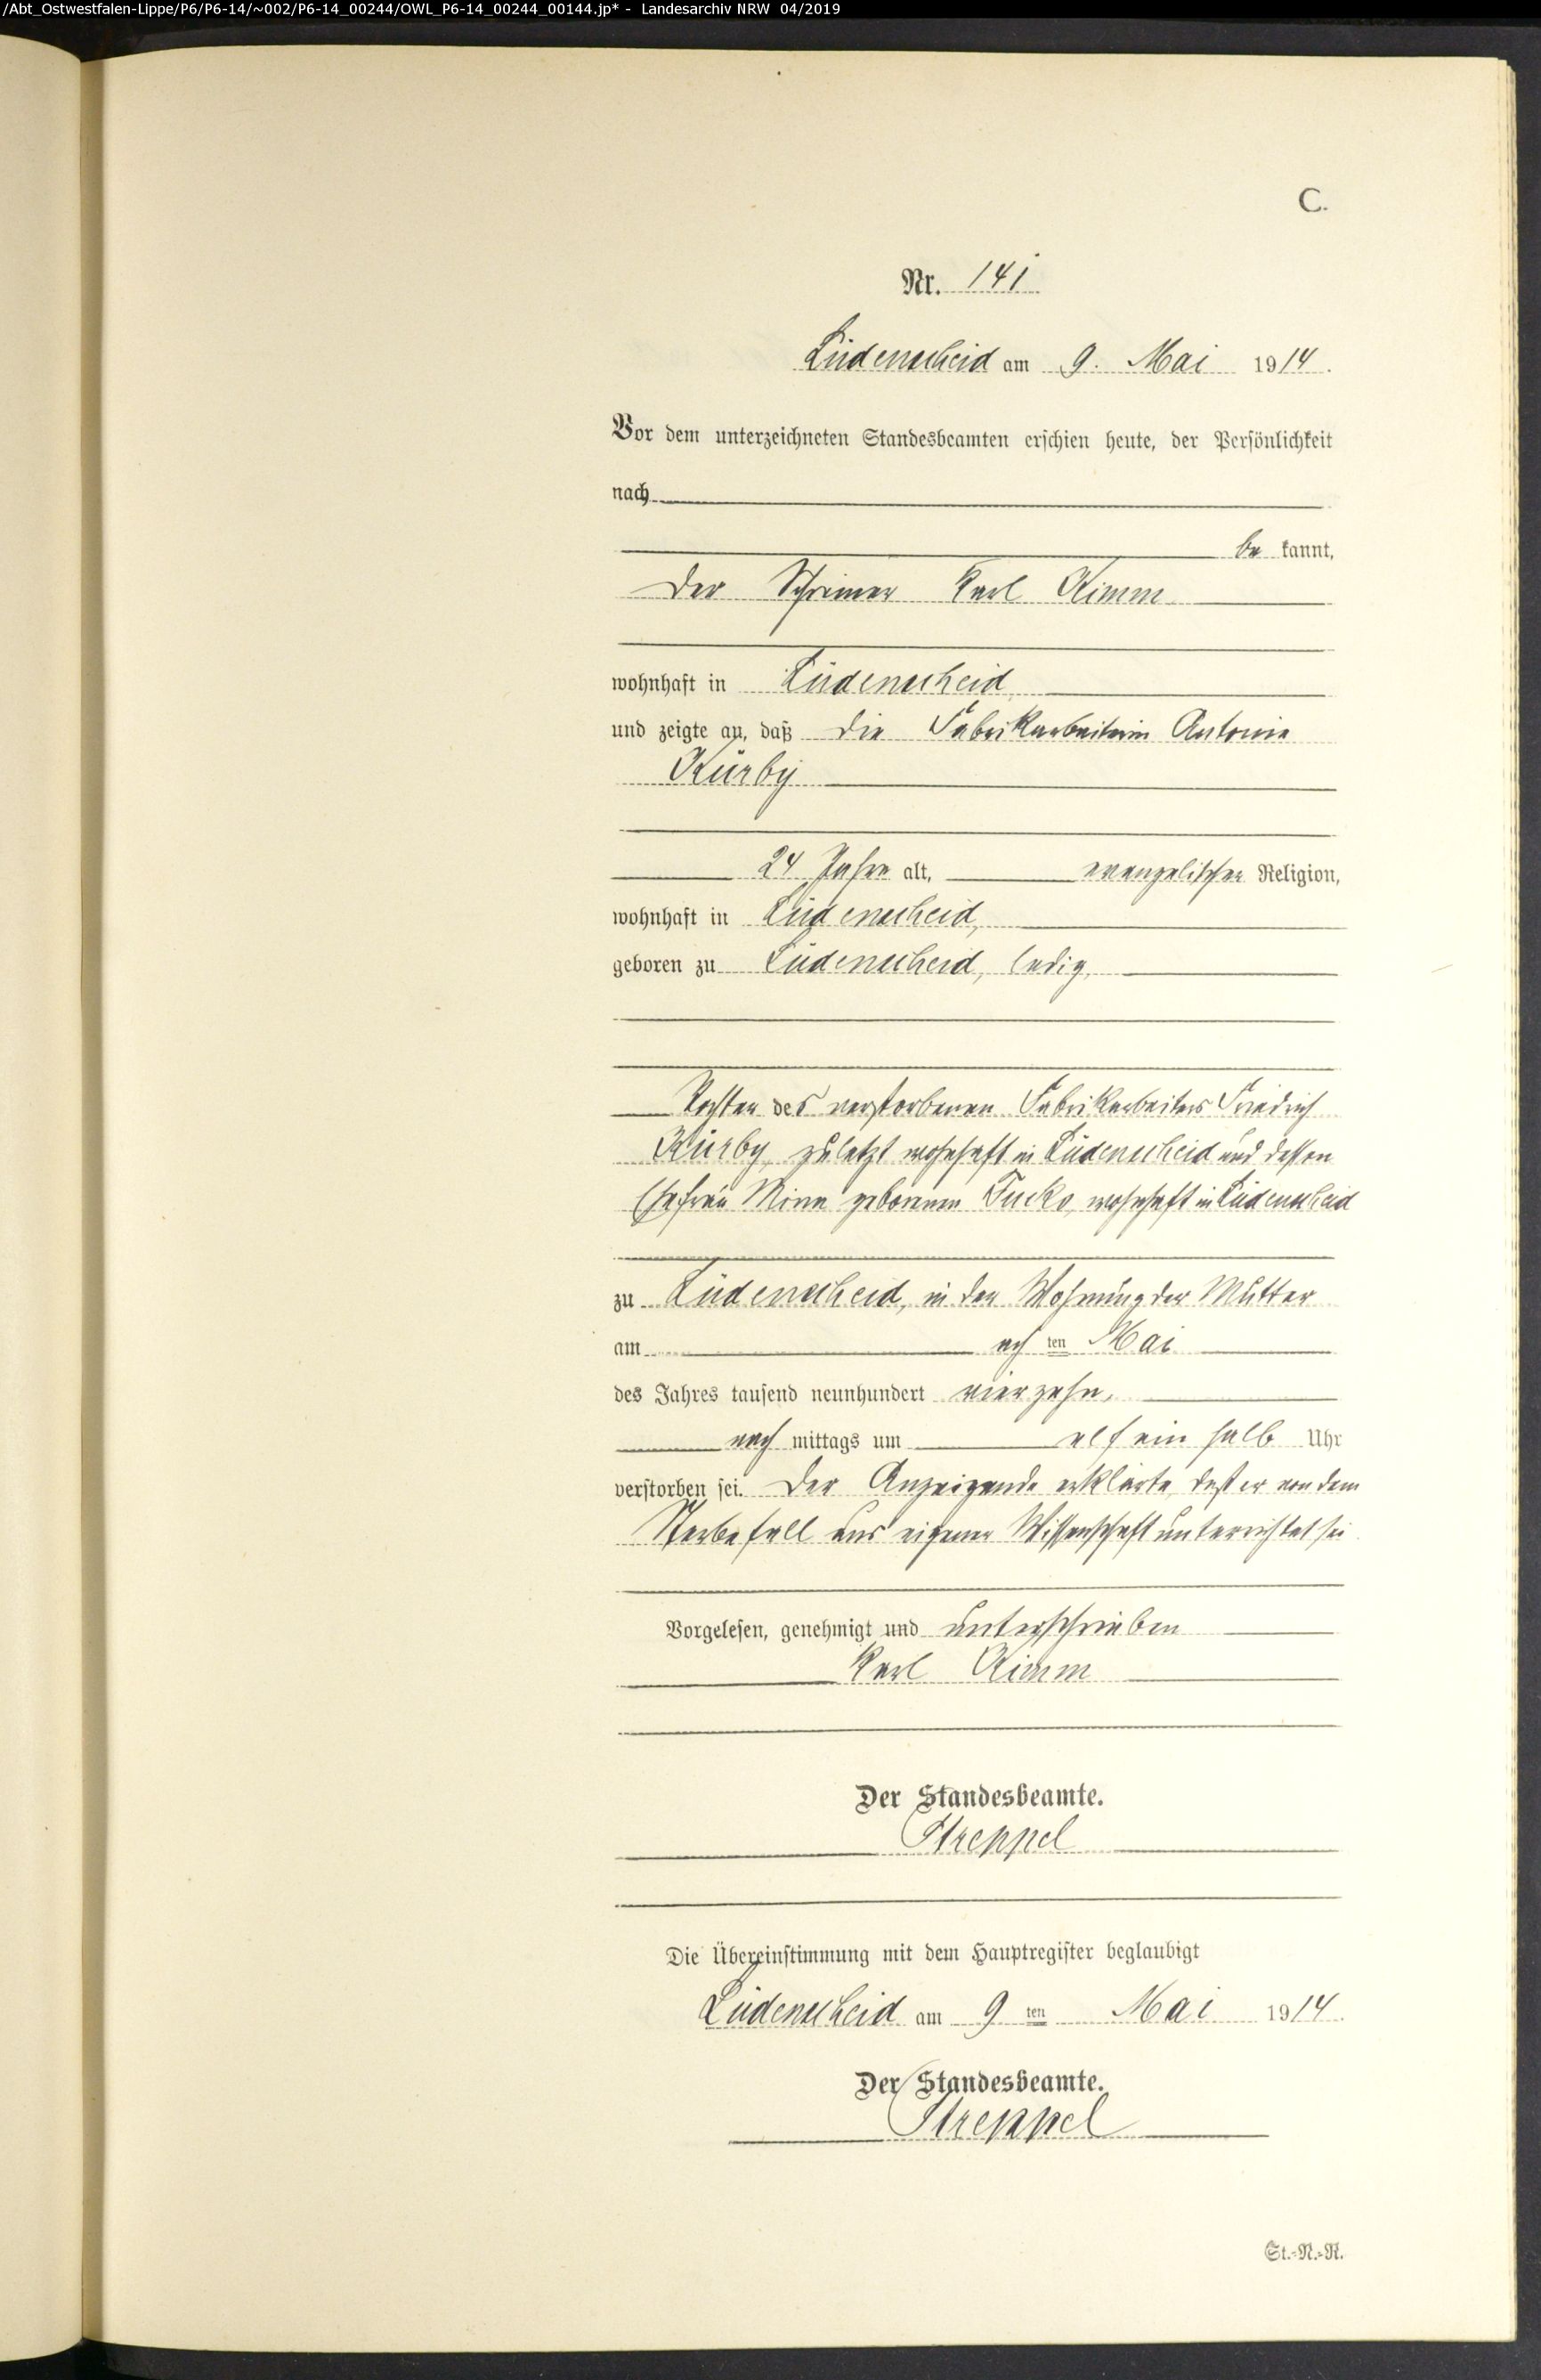 /Abt_Ostwestfalen-Lippe/P6/P6-14/~002/P6-14_00244/OWL_P6-14_00244_00144.jp* - Landesarchiv NRW 04/2019
C.
Nr. 141
Lüdenscheid am 9. Mai 1914.
Vor dem unterzeichneten Standesbeamten erschien heute, der Persönlichkeit
nach
be kannt,
der Schreiner Karl Kimm
wohnhaft in Lüdenscheid
und zeigte an, daß die Fabrikarbeiterin Antonie
Kürby
24 Jahre alt, evangelischer Religion,
wohnhaft in Lüdenscheid,
geboren zu Lüdenscheid, ledig,
Tochter des verstorbenen Fabrikarbeiters Friedrich
Kürby, zuletzt wohnhaft in Lüdenscheid und dessen
Ehefrau Minna geborenen wohnhaft in Lüdenscheid
zu Lüdenscheid, in der Wohnung der Mutter
am ach ten Mai
des Jahres tausend neunhundert vierzehn,
nach mittags um elf ein halb Uhr
verstorben sei. Der Anzeigende erklärte, daß er von dem
Sterbefall aus eigener Wissenschaft unterrichtet sei
Vorgelesen, genehmigt und unterschrieben
Karl Kimm
Der Standesbeamte.
Streppel
Die Übereinstimmung mit dem Hauptregister beglaubigt
Lüdenscheid am 9 ten Mai 1914.
Der Standesbeamte.
Streppel
St.-N.-R.